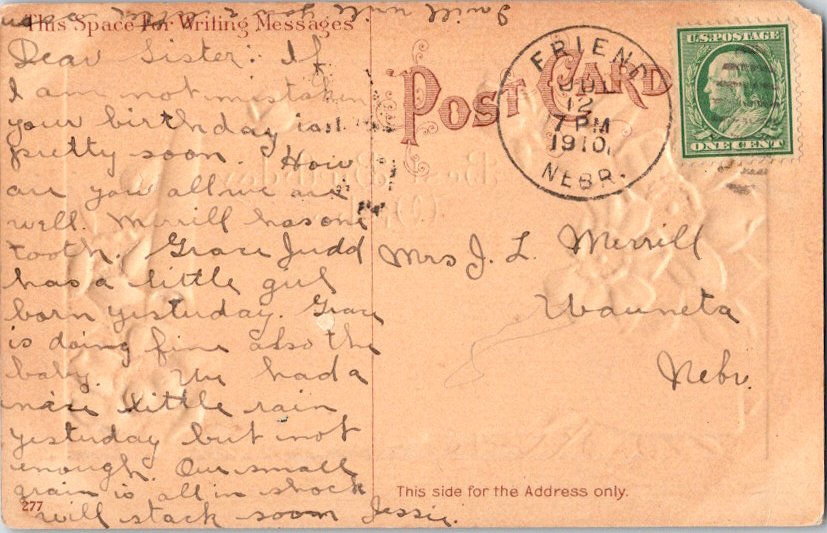 This Space For Writing Messages
I will write you a letter
Dear Sister: If
I am not mistaken
your birthday is
pretty soon. How
are you all we are
well. Merrill has one
tooth. Grace Judd
has a little girl
born yesterday. Grace
is doing fine also the
baby. We had a
nice little rain
yesterday but not
enough. Our small
grain is all in shock
will stack soon Jessie.
277
POST CARD
FRIEND
12
7 PM
1910
NEBR.
U.S. POSTAGE
ONE CENT
Best Birthday
Mrs J. L. Merrill
Wauneta
Nebr.
This side for the Address only.